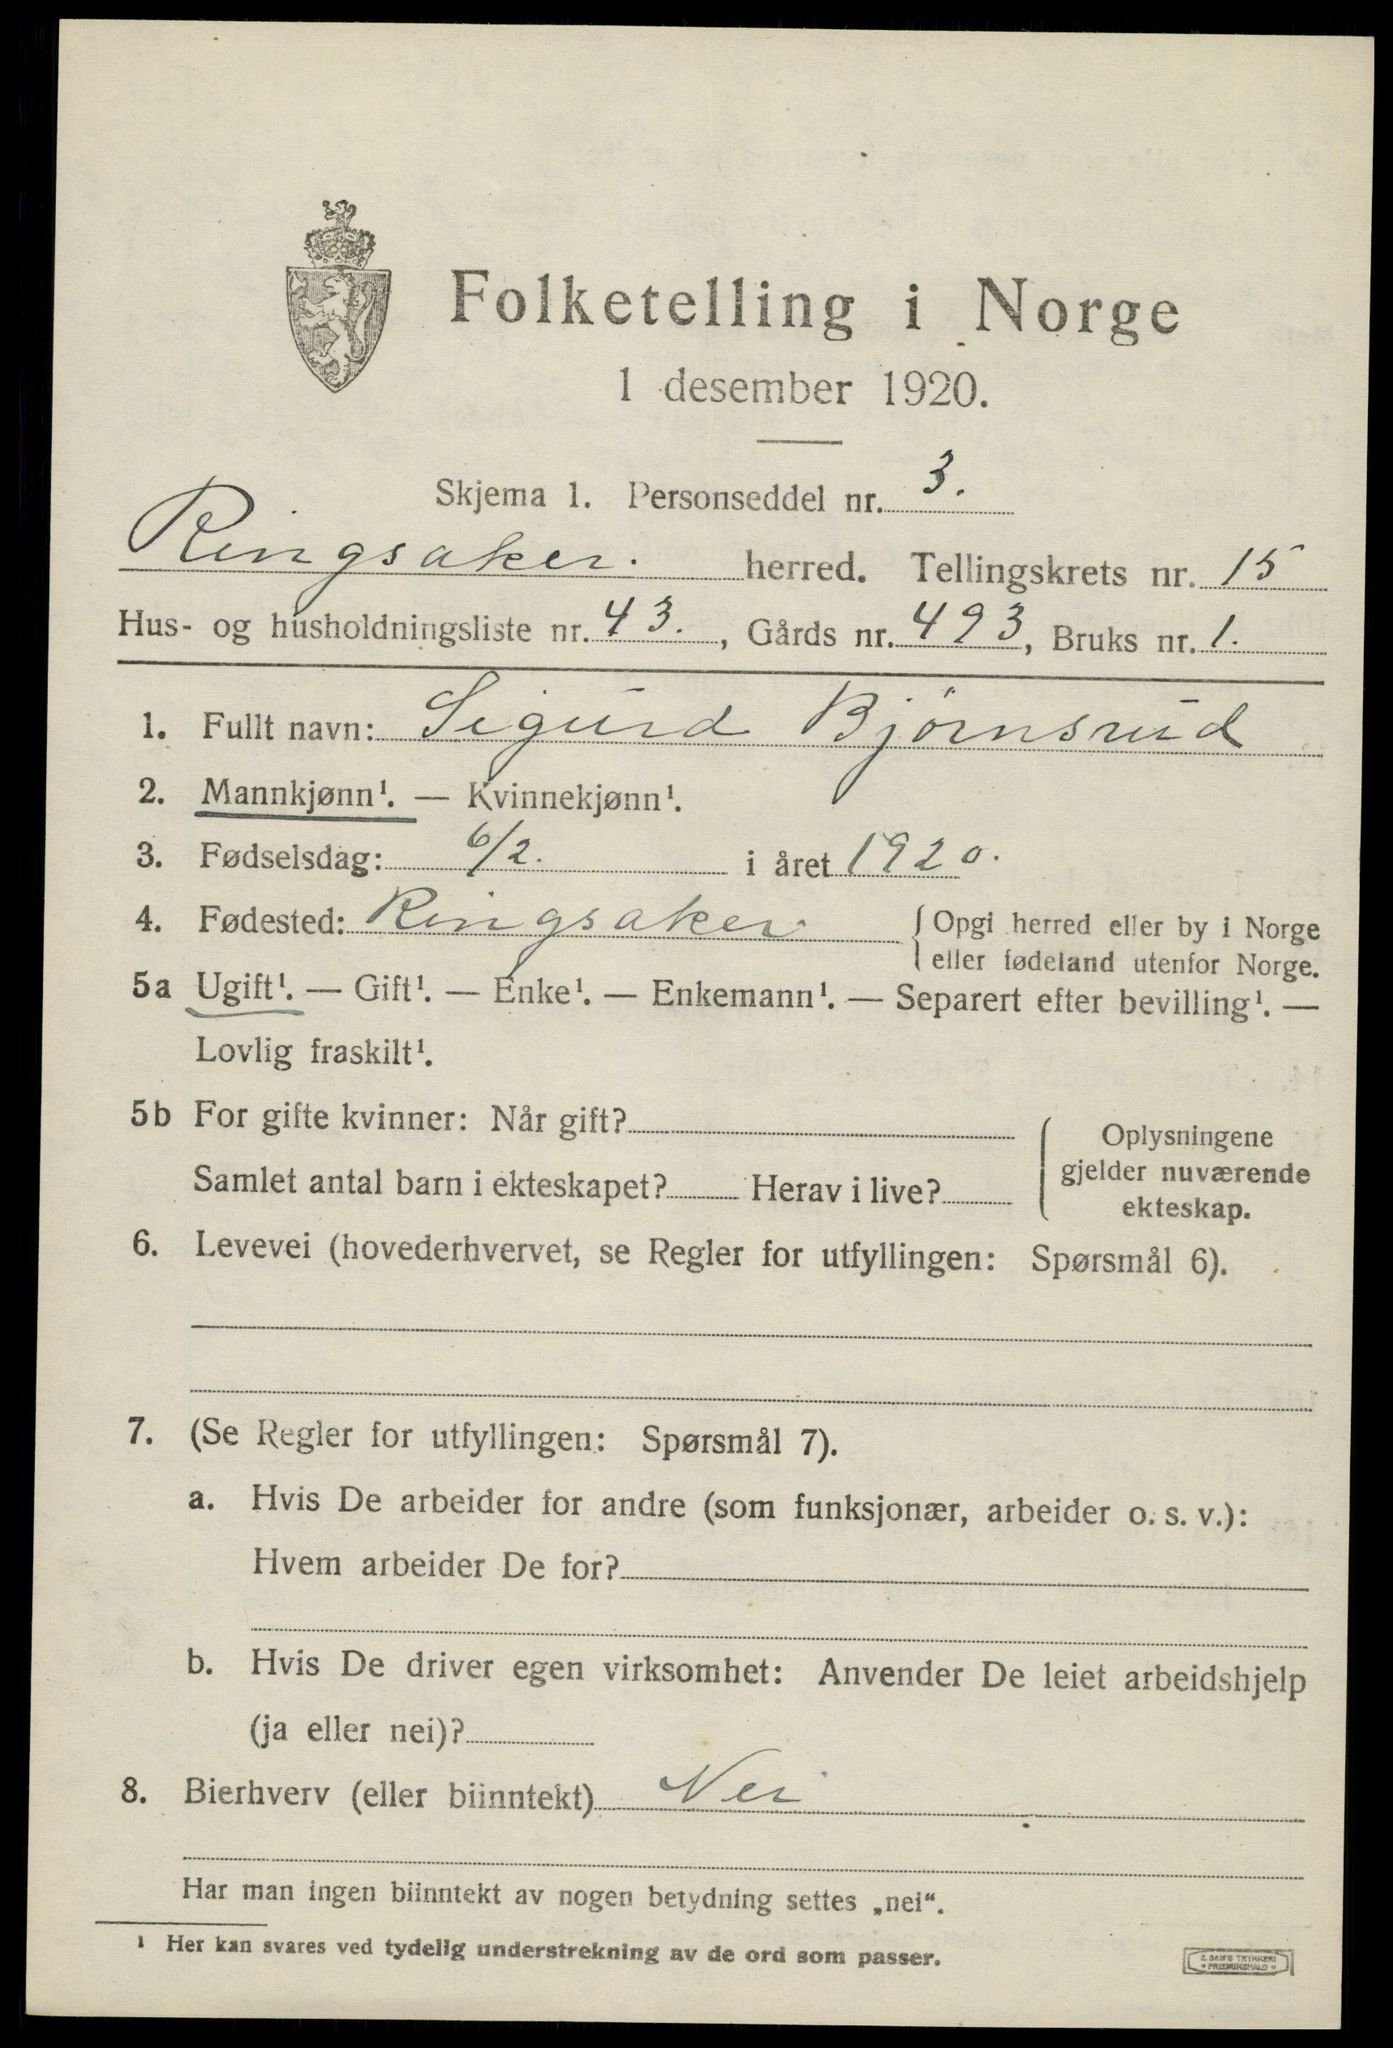 Folketelling i Norge
1 desember 1920.
Skjema 1. Personseddel nr. 3.
Ringsaker. herred. Tellingskrets nr. 15
Hus- og husholdningsliste nr. 43., Gårds nr. 493, Bruks nr. 1.
1. Fullt navn: Sigurd Bjørnsrud
2. Mannkjønn¹. — Kvinnekjønn¹.
3. Fødselsdag: 6/2. i året 1920.
4. Fødested: Ringsaker { Opgi herred eller by i Norge
eller fødeland utenfor Norge.
5a Ugift¹. — Gift¹. — Enke¹. — Enkemann¹. — Separert efter bevilling¹. —
Lovlig fraskilt¹.
5b For gifte kvinner: Når gift?
Oplysningene
Samlet antal barn i ekteskapet? Herav i live?
gjelder nuværende
ekteskap.
6. Levevei (hovederhvervet, se Regler for utfyllingen: Spørsmål 6).
7. (Se Regler for utfyllingen: Spørsmål 7).
a. Hvis De arbeider for andre (som funksjonær, arbeider o. s. v.):
Hvem arbeider De for?
b. Hvis De driver egen virksomhet: Anvender De leiet arbeidshjelp
(ja eller nei)?
8. Bierhverv (eller biinntekt) Nei
Har man ingen biinntekt av nogen betydning settes „nei“.
¹ Her kan svares ved tydelig understrekning av de ord som passer.
E SEM'S TRYKKERI
• FREDRIKSHALD •